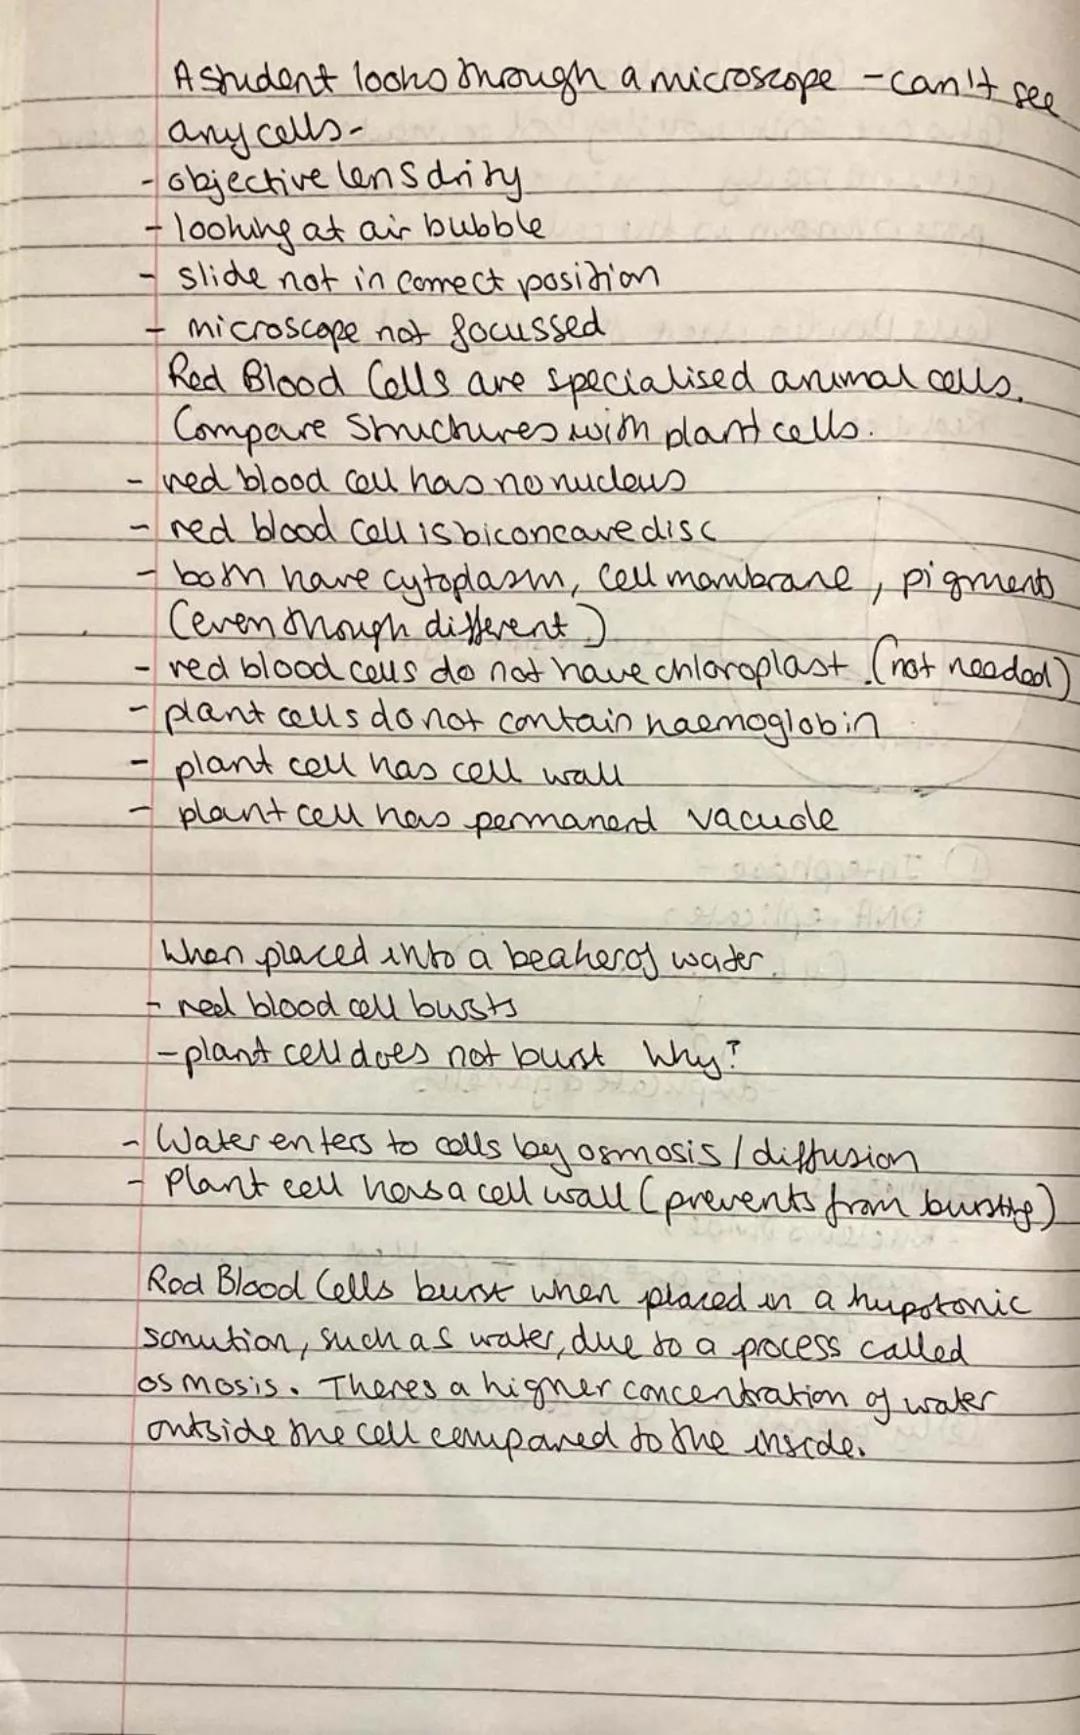 A student looks through a microscope - can't see
any cells-
- objective lens dirty
- looking at air bubble
- slide not in correct position
- microscope not focussed
Red Blood Cells are specialised animal cells.
Compare Structures with plant cells.
- red blood cell has no nucleus
- red blood cell is biconcave disc
- both have cytoplasm, cell membrane, pigments
(even though different)
- red blood cells do not have chloroplast (not needed)
- plant cells do not contain haemoglobin
- plant cell has cell wall
- plant cell has permanent vacuole
When placed into a beaker of water
- red blood cell bursts
- plant cell does not burst Why?
- Water enters to cells by osmosis / diffusion
- Plant cell has a cell wall (prevents from bursting)
Red Blood Cells burst when placed in a hypotonic
solution, such as water, due to a process called
osmosis. Theres a higher concentration of water
outside the cell compared to the inside.